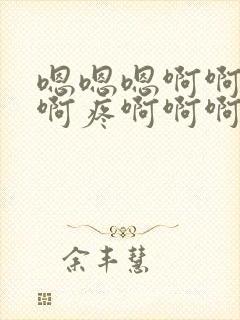 嗯嗯嗯啊啊
啊疼啊啊啊
余丰慧